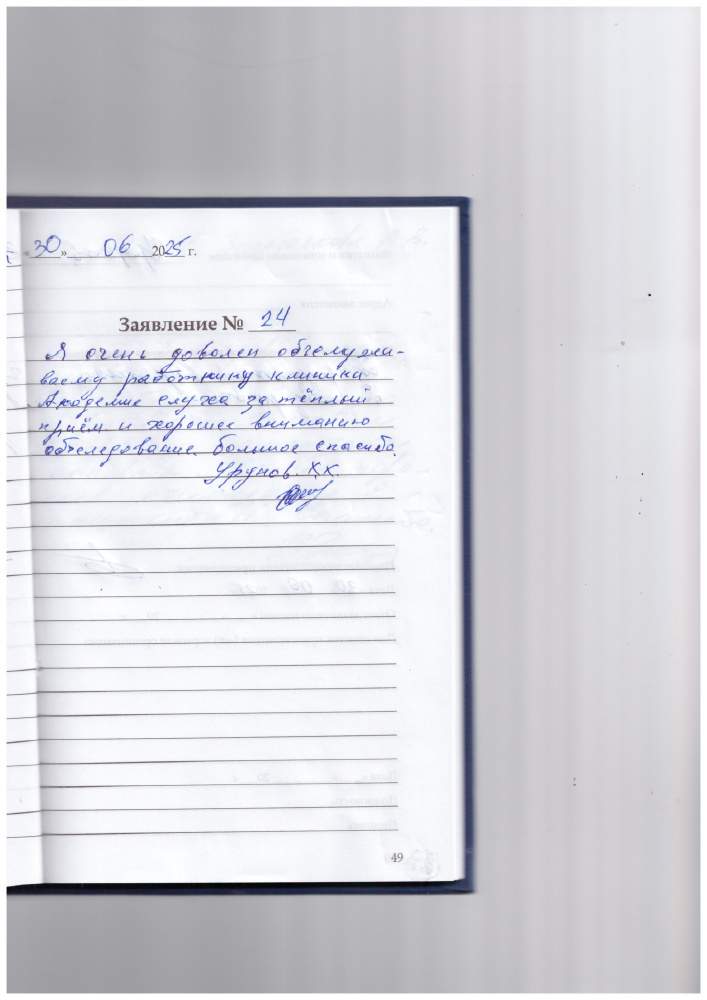 «30» 06 2025 г.
Заявление № 24
Я очень доволен обслужи-
ваему работнику клиники
Академие слуха за тёплый
приём и хорошее вниманию
обследование. большое спасибо.
Урунов. Х.К.
49